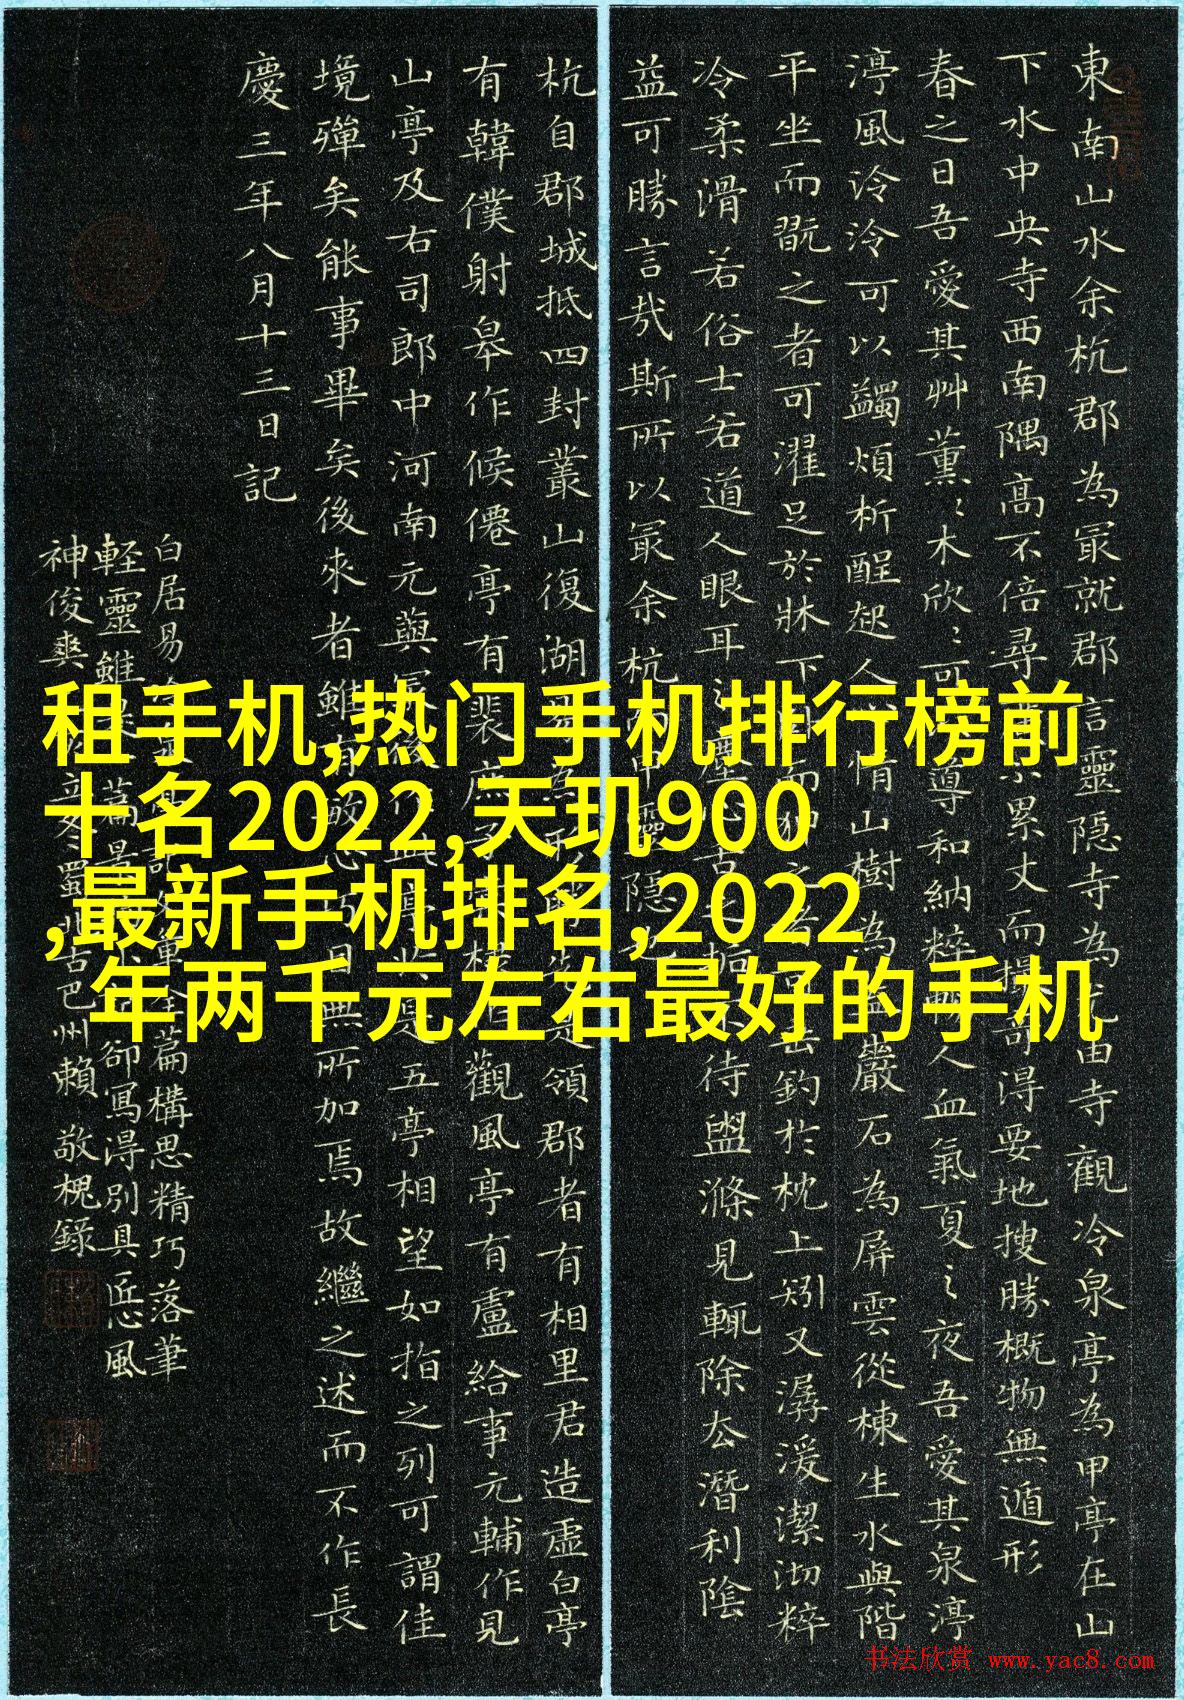 東南山水余杭郡為冣就郡言靈隐寺為尤由寺觀冷泉亭為甲亭在山
下水中央寺西南隅高不倍尋累丈而撮奇得要地搜勝概物無遁形
春之日吾愛其艸薰〻木欣〻可導和納粹暢人血氣夏之夜吾愛其泉渟
渟風泠泠可以蠲煩析酲起人心情山樹為蓋巖石為屏雲從棟生水與階
平坐而翫之者可濯足於牀下而狎之者垂釣於枕上矧又潺湲潔沏粹
冷柔滑若俗士若道人眼耳之塵心舌之垢不待盥滌見輒除去潛利陰
益可勝言哉斯所以冣余杭而甲靈隐也
杭自郡城抵四封叢山復湖易為形勝先是領郡者有相里君造虛白亭
有韓僕射皋作候僊亭有裴庶子棠棣作觀風亭有盧給事元輔作見
山亭及右司郎中河南元藇冣後作此亭於是五亭相望如指之列可謂佳
境殫矣能事畢矣後來者雖有敏心巧目無所加焉故繼之述而不作長
慶三年八月十三日記
白居易全篇構思精巧落筆
輕靈雖篇卻寫得別具匠心風
神俊爽蜀北古巴州賴敬槐錄
租手机,热门手机排行榜前
十名2022,天玑900
,最新手机排名,2022
年两千元左右最好的手机
书法欣赏 www.yac8.com